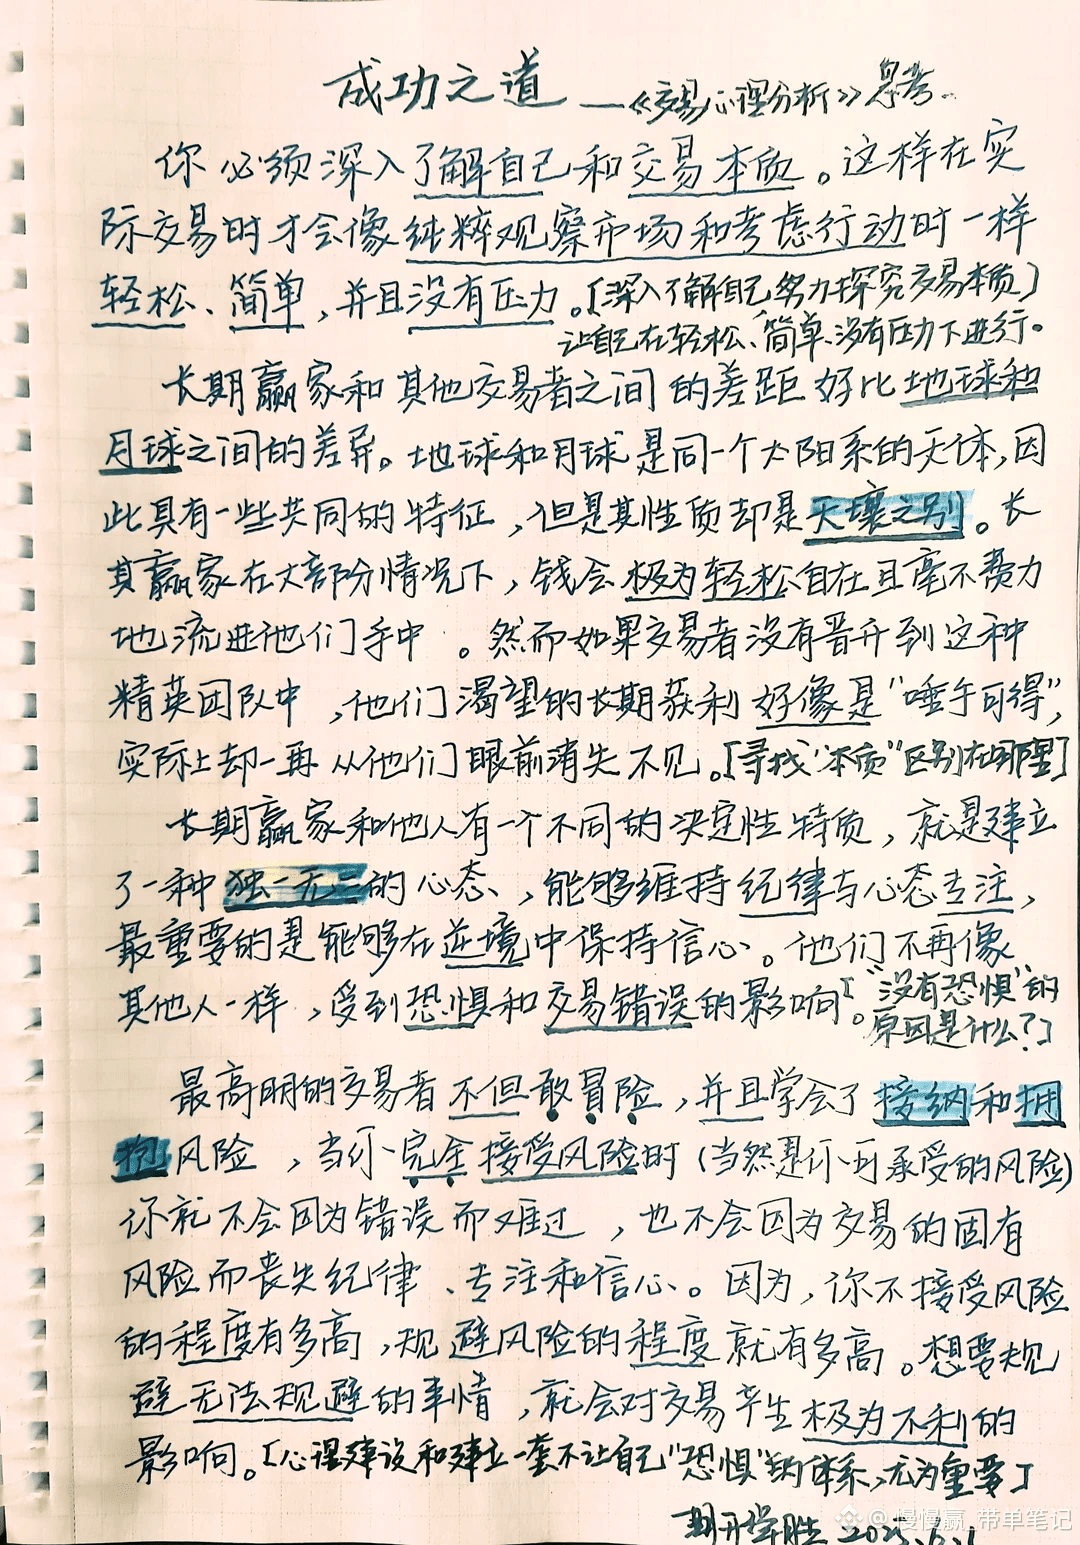 成功之道 —《交易心理分析》思考.
你必须深入了解自己和交易本质。这样在实
际交易时才会像纯粹观察市场和考虑行动时一样
轻松、简单，并且没有压力。[深入了解自己,努力探究交易本质]
让自己在轻松、简单、没有压力下进行。
长期赢家和其他交易者之间的差距好比地球和
月球之间的差异。地球和月球是同一个太阳系的天体,因
此具有一些共同的特征，但是其性质却是天壤之别。长
其赢家在大部份情况下，钱会极为轻松自在且毫不费力
地流进他们手中。然而如果交易者没有晋升到这种
精英团队中，他们渴望的长期获利好像是"唾手可得",
实际上却一再从他们眼前消失不见。[寻找"本质"区别在哪里]
长期赢家和他人有一个不同的决定性特质，就是建立
了一种独一无二的心态、，能够维持纪律与心态专注，
最重要的是能够在逆境中保持信心。他们不再像
其他人一样，受到恐惧和交易错误的影响。["没有恐惧"的
原因是什么?]
最高明的交易者不但敢冒险，并且学会了接纳和拥
抱风险，当你完全接受风险时(当然是你可承受的风险)
你就不会因为错误而难过，也不会因为交易的固有
风险而丧失纪律、专注和信心。因为，你不接受风险
的程度有多高，规避风险的程度就有多高。想要规
避无法规避的事情，就会对交易产生极为不利的
影响。[心理建设和建立一套不让自己"恐惧"的体系,尤为重要]
2025.6.1
@慢慢赢_带单笔记